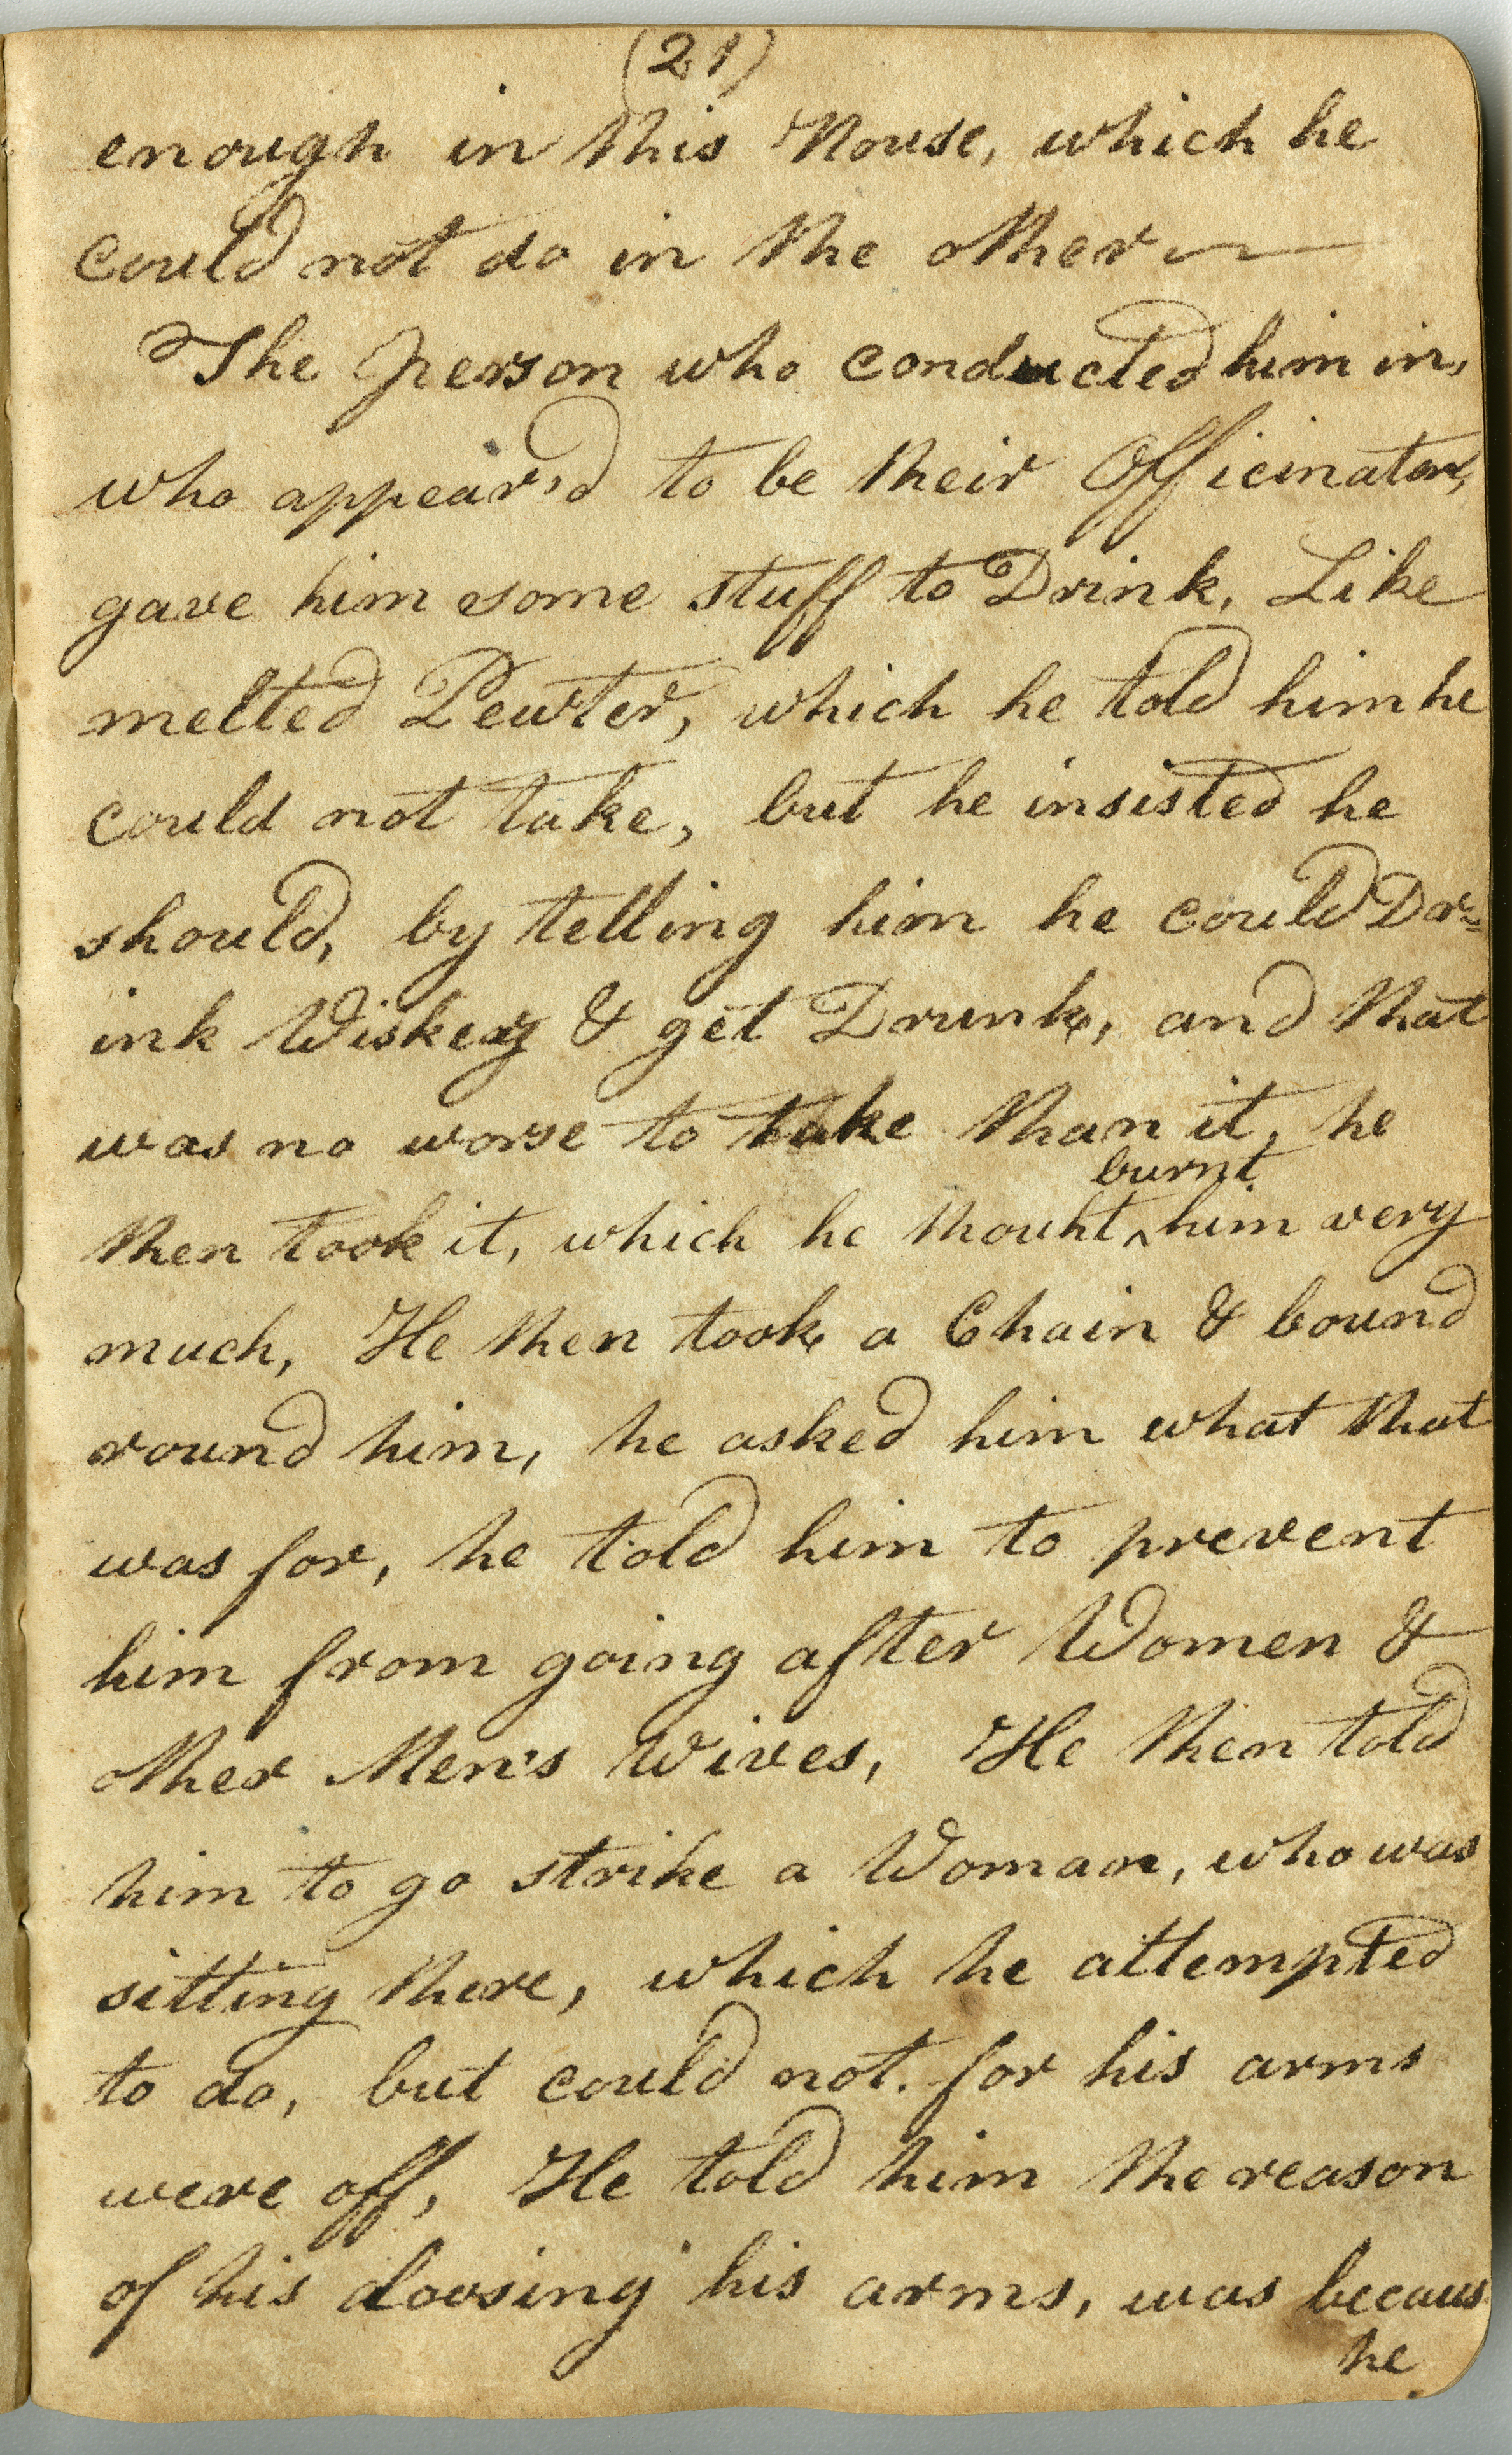 (21)
enough in this House, which he
could not do in the other
The Person who conducted him in,
who appear'd to be their Officinator,
gave him some stuff to Drink, Like
melted Pewter, which he told him he
could not take, but he insisted he
should, by telling him he could Dr=
ink Wiskey & get Drunk, and that
was no worse to take than it, he
burnt
then took it, which he thouht ^ him very
much, He then took a Chain & bound
round him, he asked him what that
was for, he told him to prevent
him from going after Women &
other Men's Wives, He then told
him to go strike a Woman, who was
sitting there, which he attempted
to do, but could not. for his arms
were off, He told him the reason
of his loosing his arms, was becaus
he